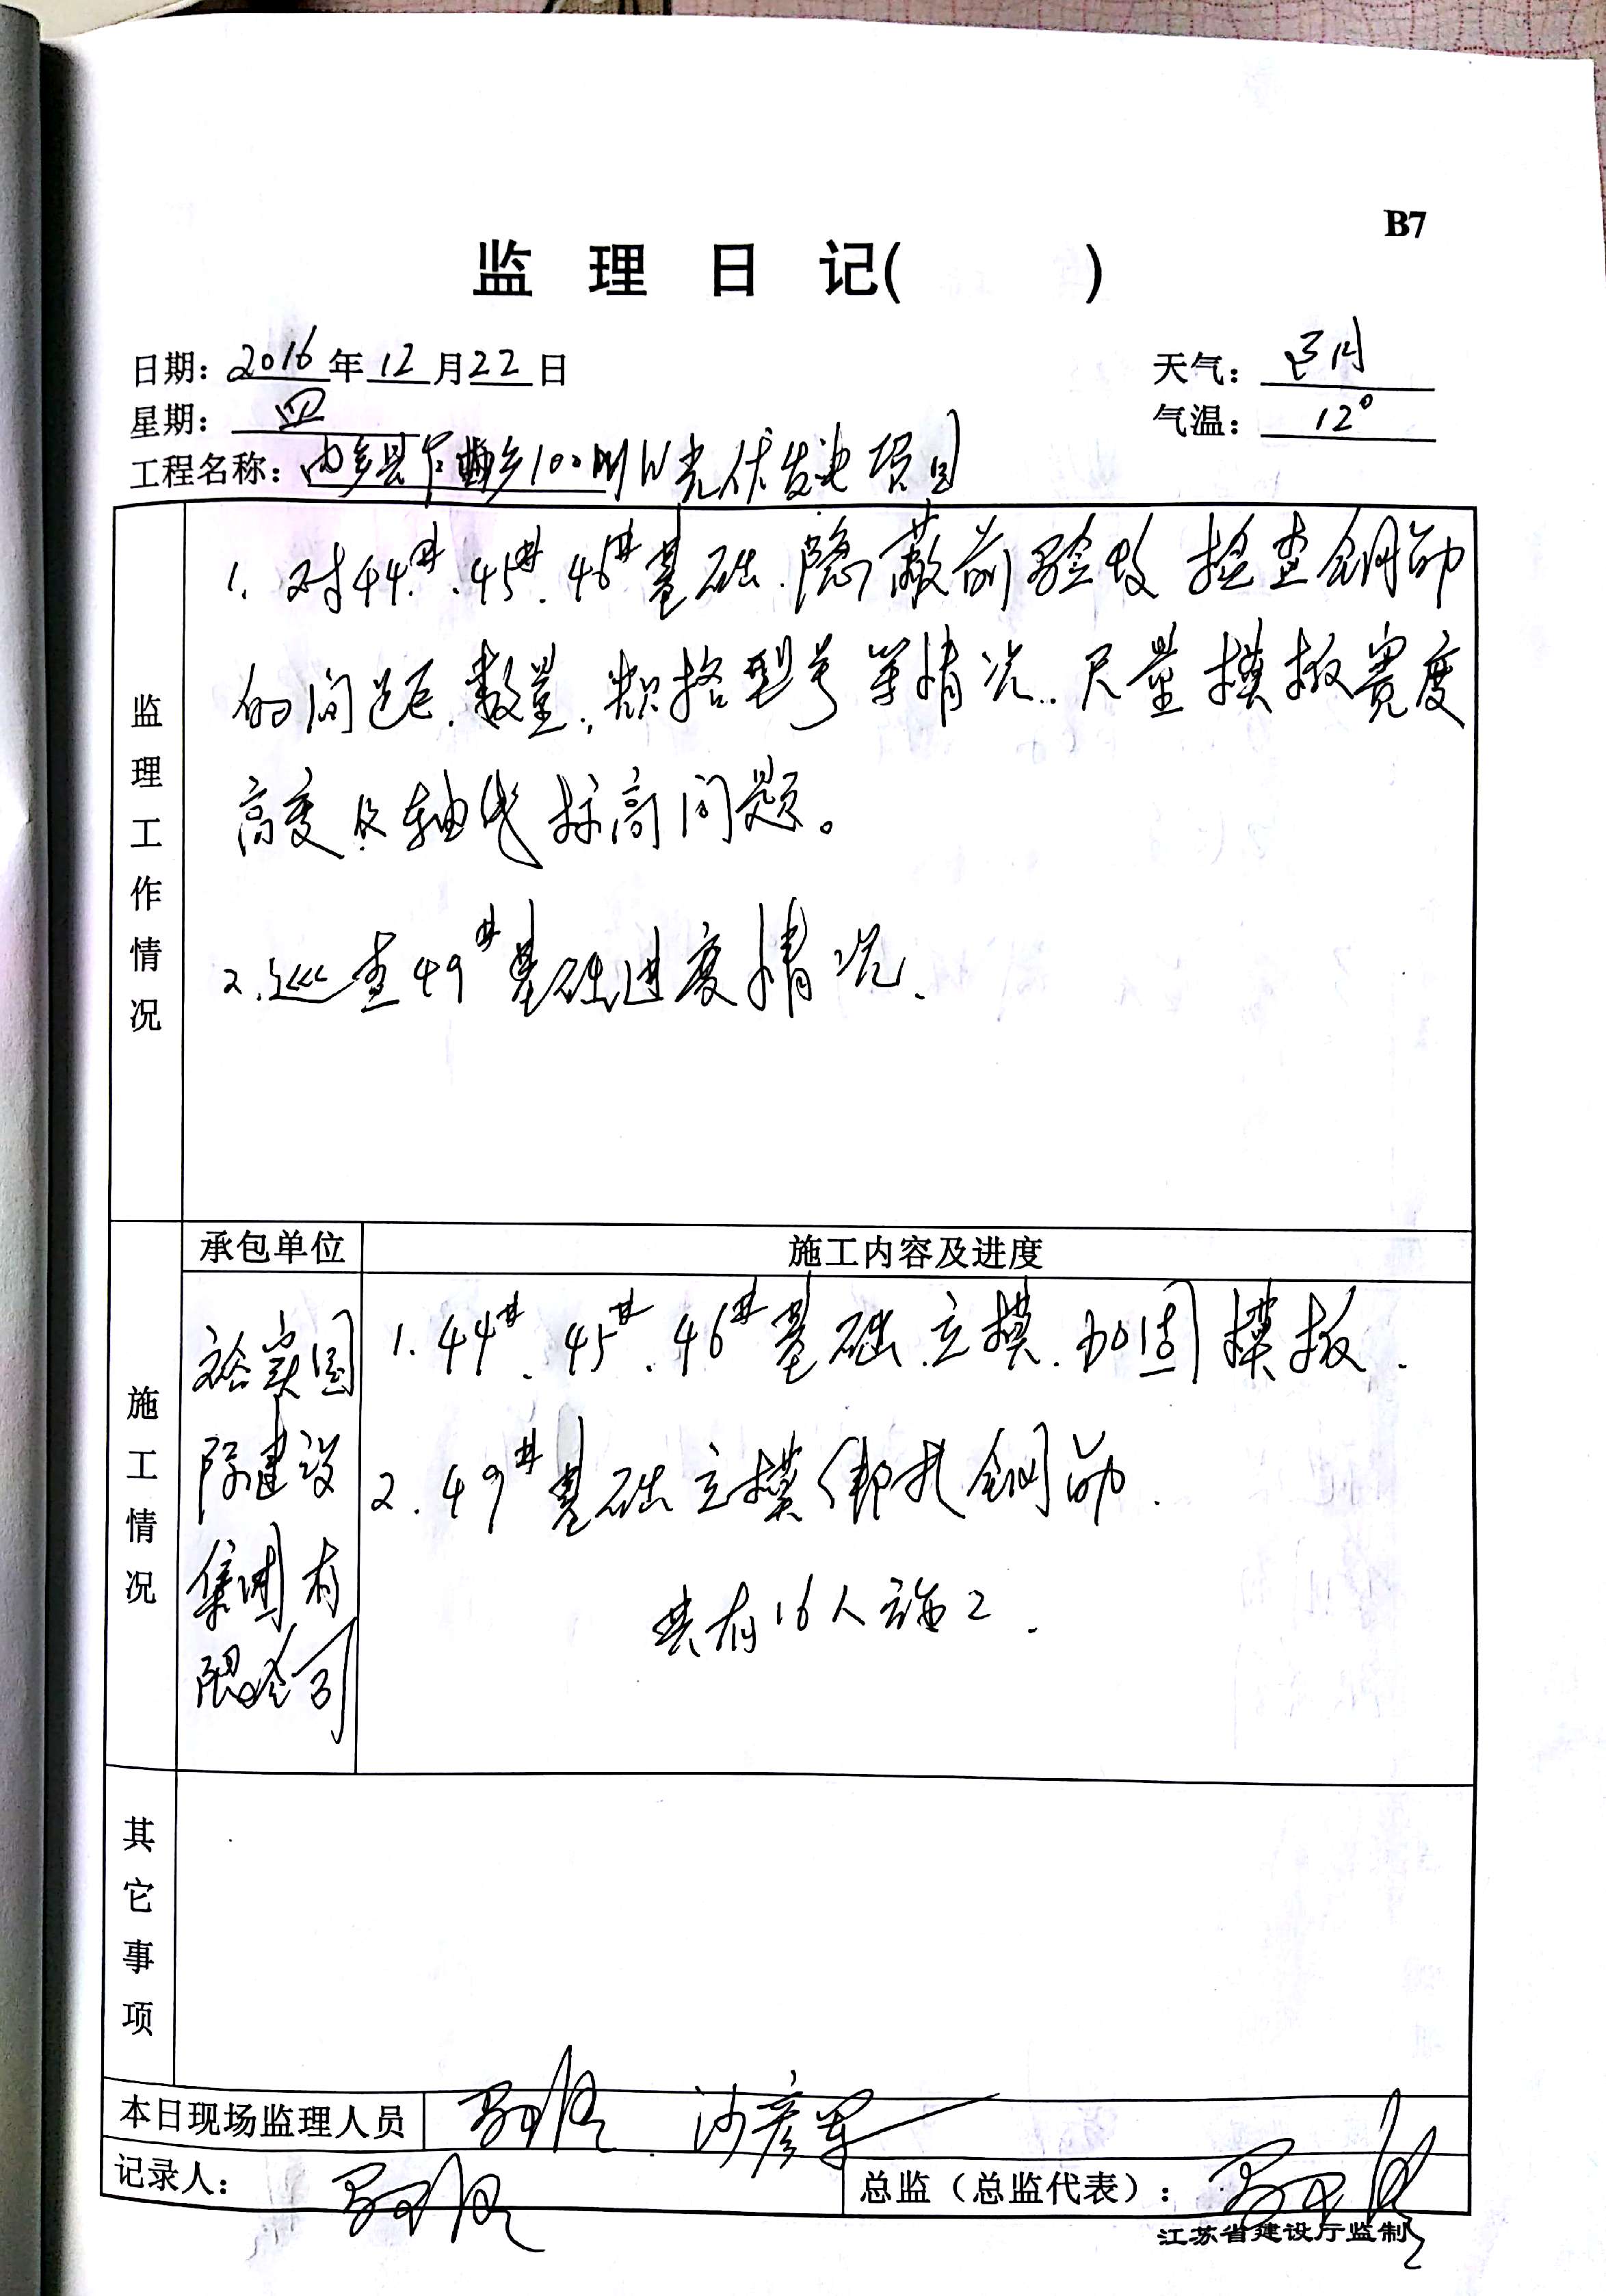 B7
监 理 日 记( )
日期: 2016 年 12 月 22 日 天气: 阴
星期: 四 气温: 12°
工程名称: 内乡县下曲乡100MW光伏发电项目
监理工作情况
1. 对44#、45#、46#基础.隐蔽前验收 检查钢筋
的间距.数量.规格型号等情况.尺量模板宽度
高度及轴线标高问题。
2.巡查49#基础进度情况.
施工情况
承包单位 施工内容及进度
裕实国
际建设
集团有
限公司
1.44#.45#.46#基础.立模.加固模板.
2.49#基础立模绑扎钢筋.
共有16人施工.
其它事项
本日现场监理人员 沙彦军
记录人: 总监（总监代表）:
江苏省建设厅监制